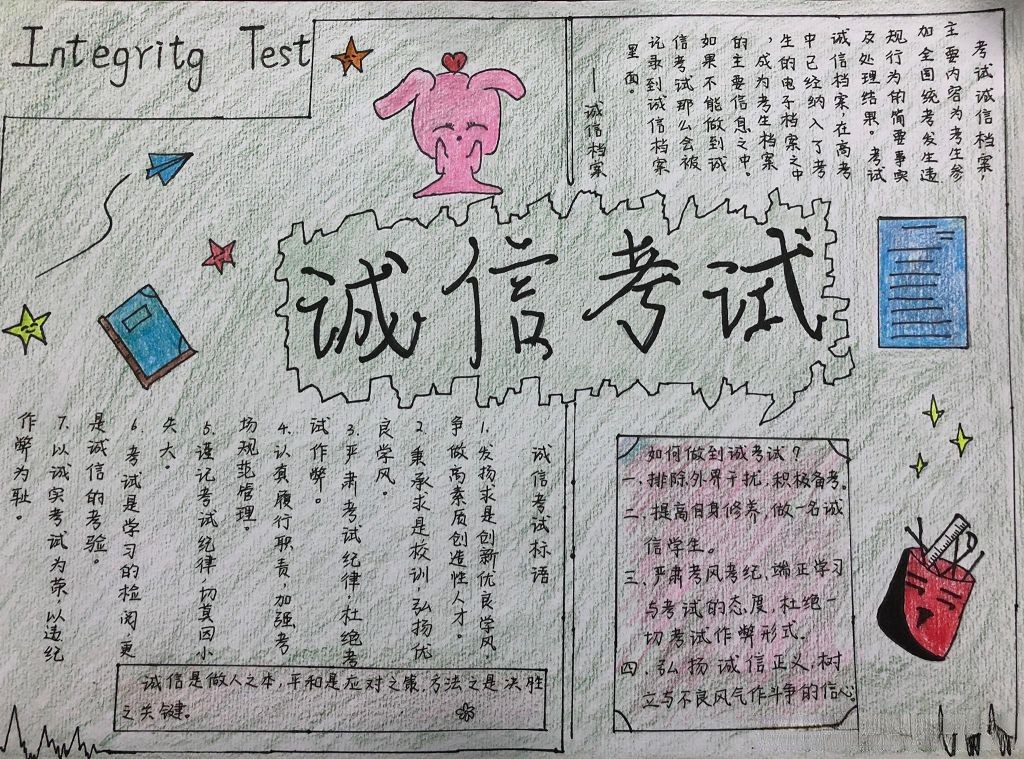 Integritg Test
考试诚信档案,
主要内容为考生参
加全国统考发生违
规行为的简要事实
及处理结果。考试
诚信档案,在高考
中已经纳入了考
生的电子档案之中
,成为考生档案
的主要信息之中。
如果不能做到诚
信考试那么会被
记录到诚信档案
里面。
——诚信档案
诚信考试
诚信考试标语
1.发扬求是创新优良学风,
争做高素质创造性人才。
2.秉承求是校训,弘扬优
良学风。
3.严肃考试纪律,杜绝考
试作弊。
4.认真履行职责,加强考
场规范管理。
5.谨记考试纪律,切莫因小
失大。
6.考试是学习的检阅,更
是诚信的考验。
7.以诚实考试为荣,以违纪
作弊为耻。
诚信是做人之本,平和是应对之策,方法之是决胜
之关键。
如何做到诚考试?
一、排除外界干扰,积极备考。
二、提高自身修养,做一名诚
信学生。
三、严肃考风考纪,端正学习
与考试的态度,杜绝一
切考试作弊形式。
四、弘扬诚信正义,树
立与不良风气作斗争的信心。